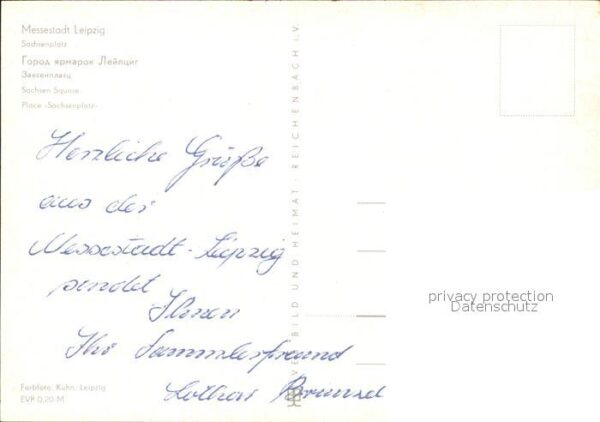 Messestadt Leipzig
Sachsenplatz
Город ярмарок Лейпциг
Заксенплатц
Sachsen Square
Place «Sachsenplatz»
Herzliche Grüße
aus der
Messestadt-Leipzig
sendet
Ihnen
Ihr Sammlerfreund
Lothar
BILD UND HEIMAT · REICHENBACH i.V.
privacy protection
Datenschutz
Farbfoto: Kühn, Leipzig
EVP 0,20 M